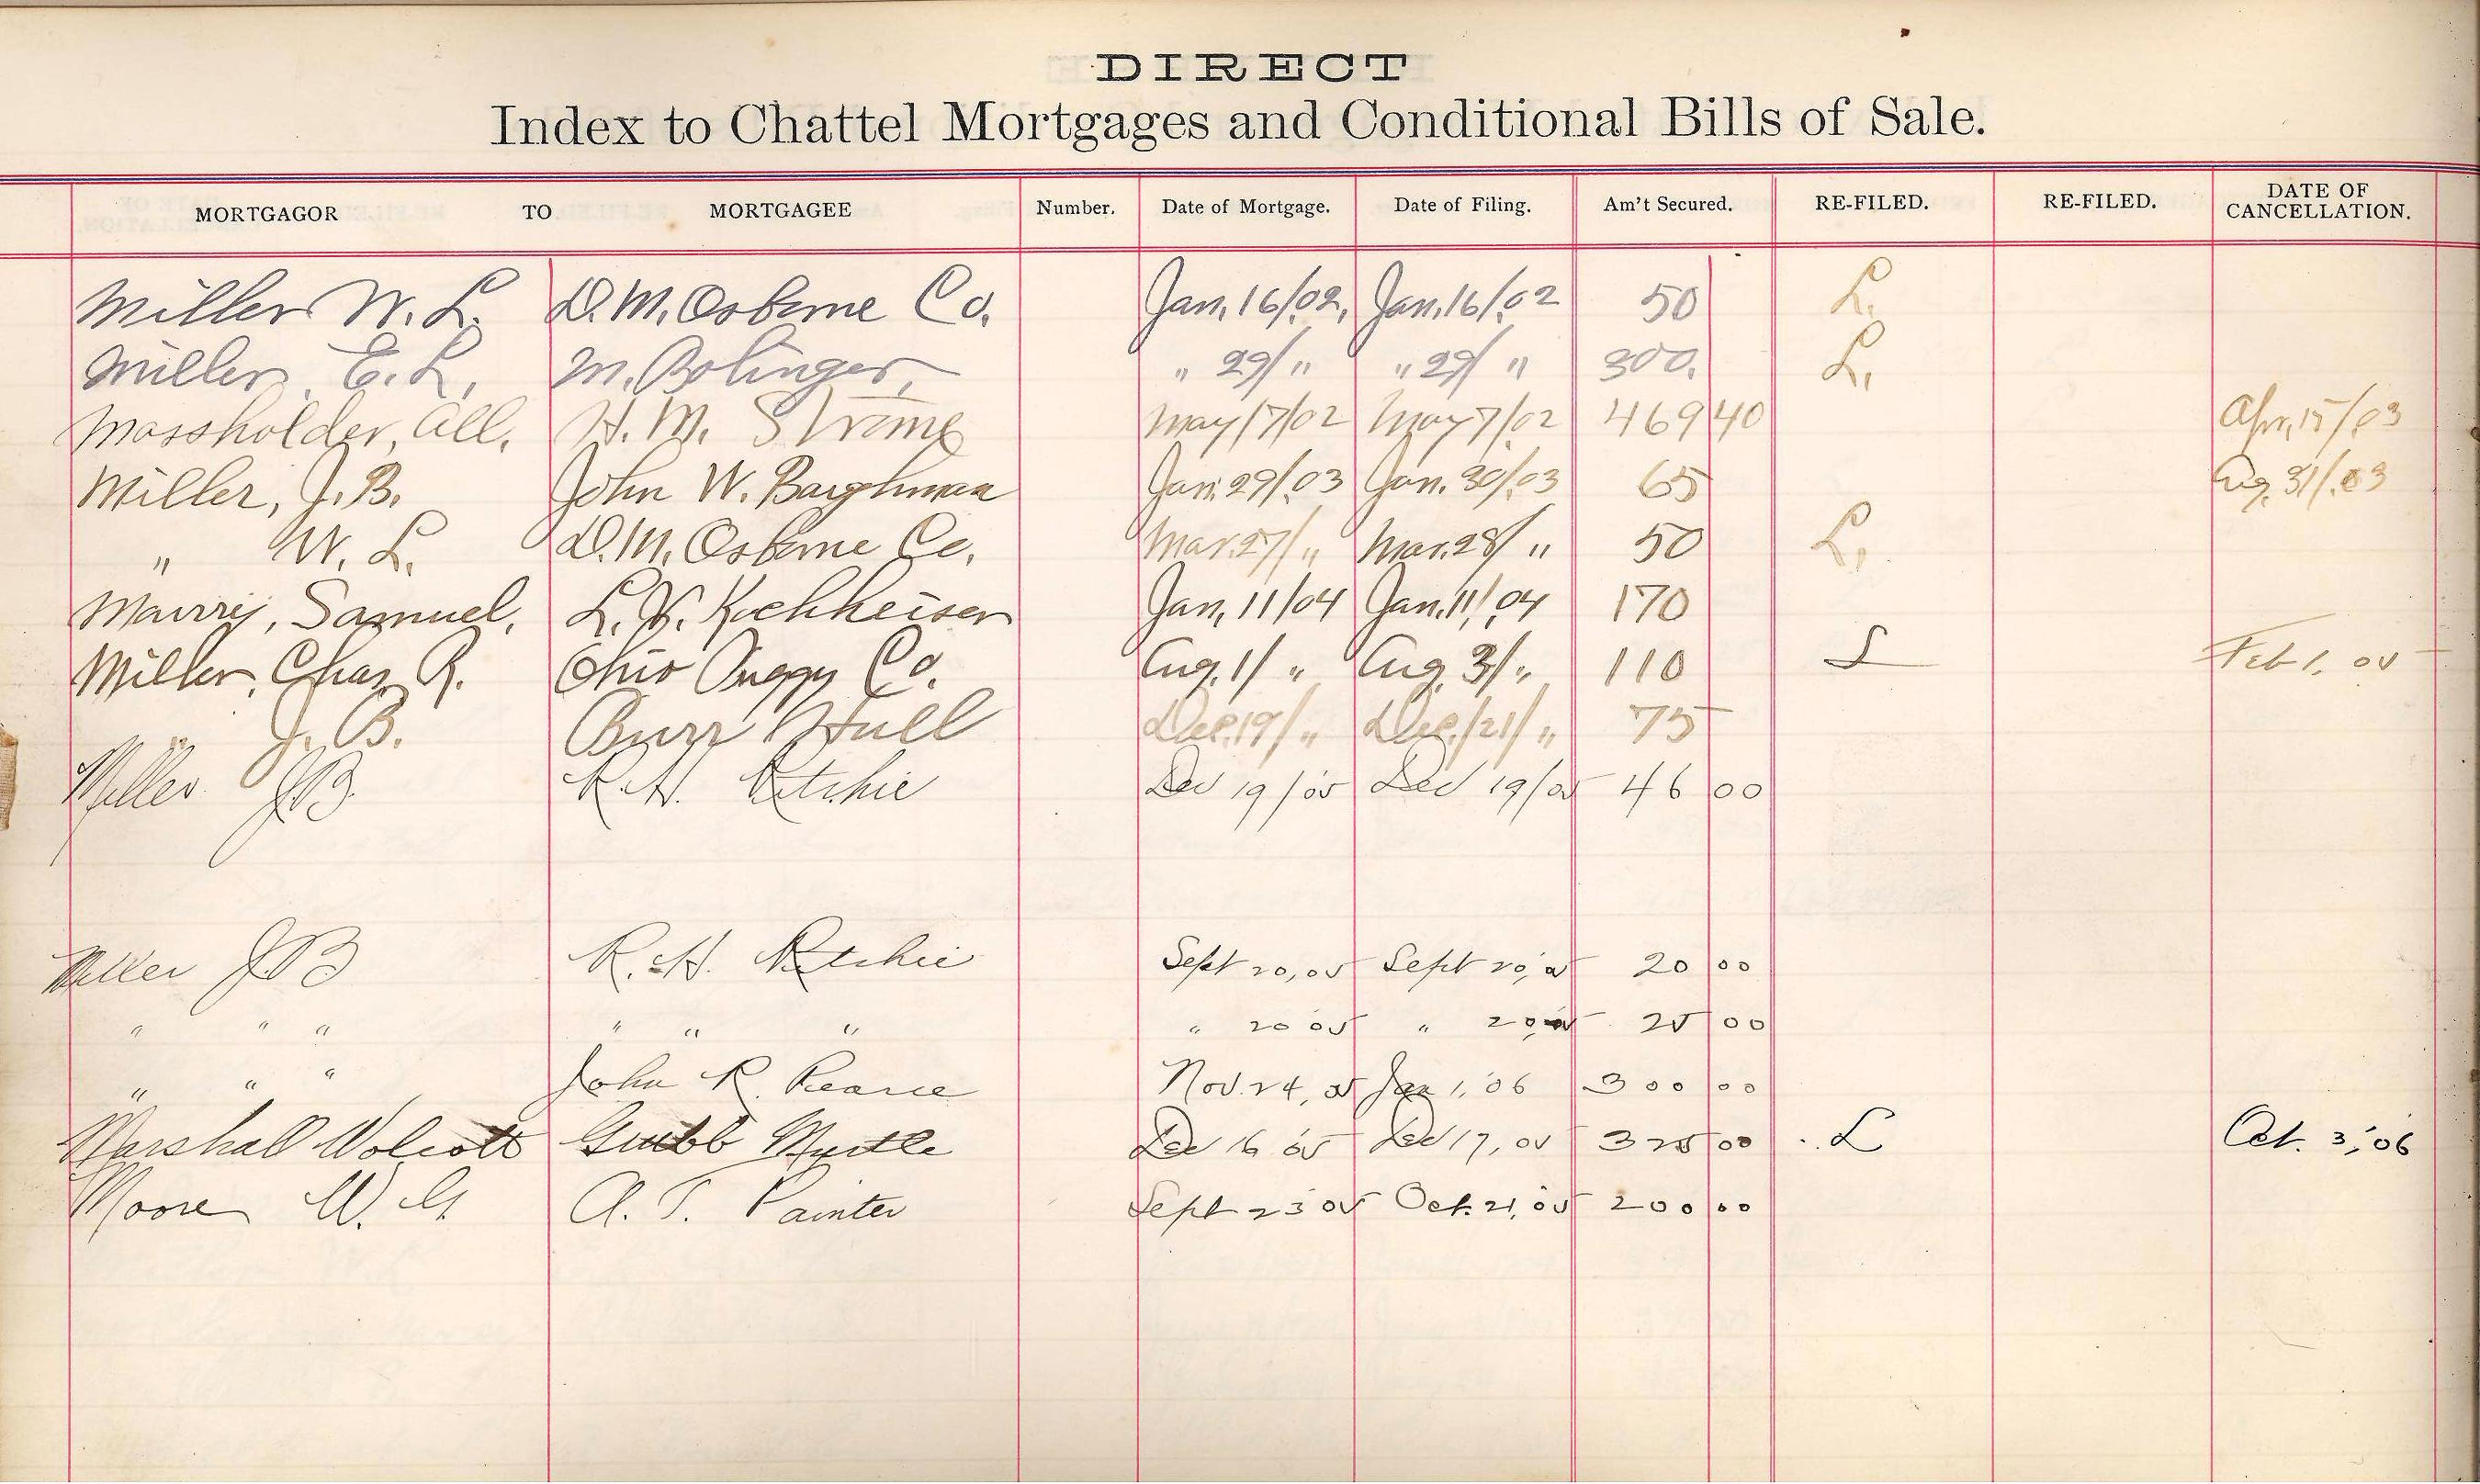 DIRECT
Index to Chattel Mortgages and Conditional Bills of Sale.
MORTGAGOR TO MORTGAGEE Number. Date of Mortgage. Date of Filing. Am't Secured. RE-FILED. RE-FILED. DATE OF CANCELLATION.
Miller W. L. D. M. Osborne Co. Jan, 16/02, Jan, 16/02 50 L.
Miller, E. L, M. Bolinger, " 29/ " " 29/ " 300. L,
Massholder, All, H. M. Strome May/7/02 May 7/02 469 40 Apr, 15/03
Miller, J. B. John W. Baughman Jan. 29/03 Jan. 30/03 65 Aug. 31/03
" W. L. D. M. Osborne Co. Mar. 27/ " Mar. 28/ " 50 L,
Samuel, L. Kochheiser Jan, 11/04 Jan. 11/04 170
Miller, Chas R. Ohio Buggy Co. Aug. 1/ " Aug. 3/ " 110 L Feb 1, 05
" J. B. Burr Hull Dec. 19/ " Dec. 21/ " 75
Miller J B R. H. Ritchie Dec 19/05 Dec 19/05 46 00
Miller J B R. H. Ritchie Sept 20, 05 Sept 20, 05 20 00
" " " " " " " 20 05 " 20 05 25 00
" " " John R. Pearce Nov. 24, 05 Jan 1, '06 300 00
Marshall Wolcott Grubb Myrtle Dec 16 05 Dec 17, 05 325 00 L Oct. 3, '06
Moore W. G. A. T. Painter Sept 23 05 Oct. 21, 05 200 00